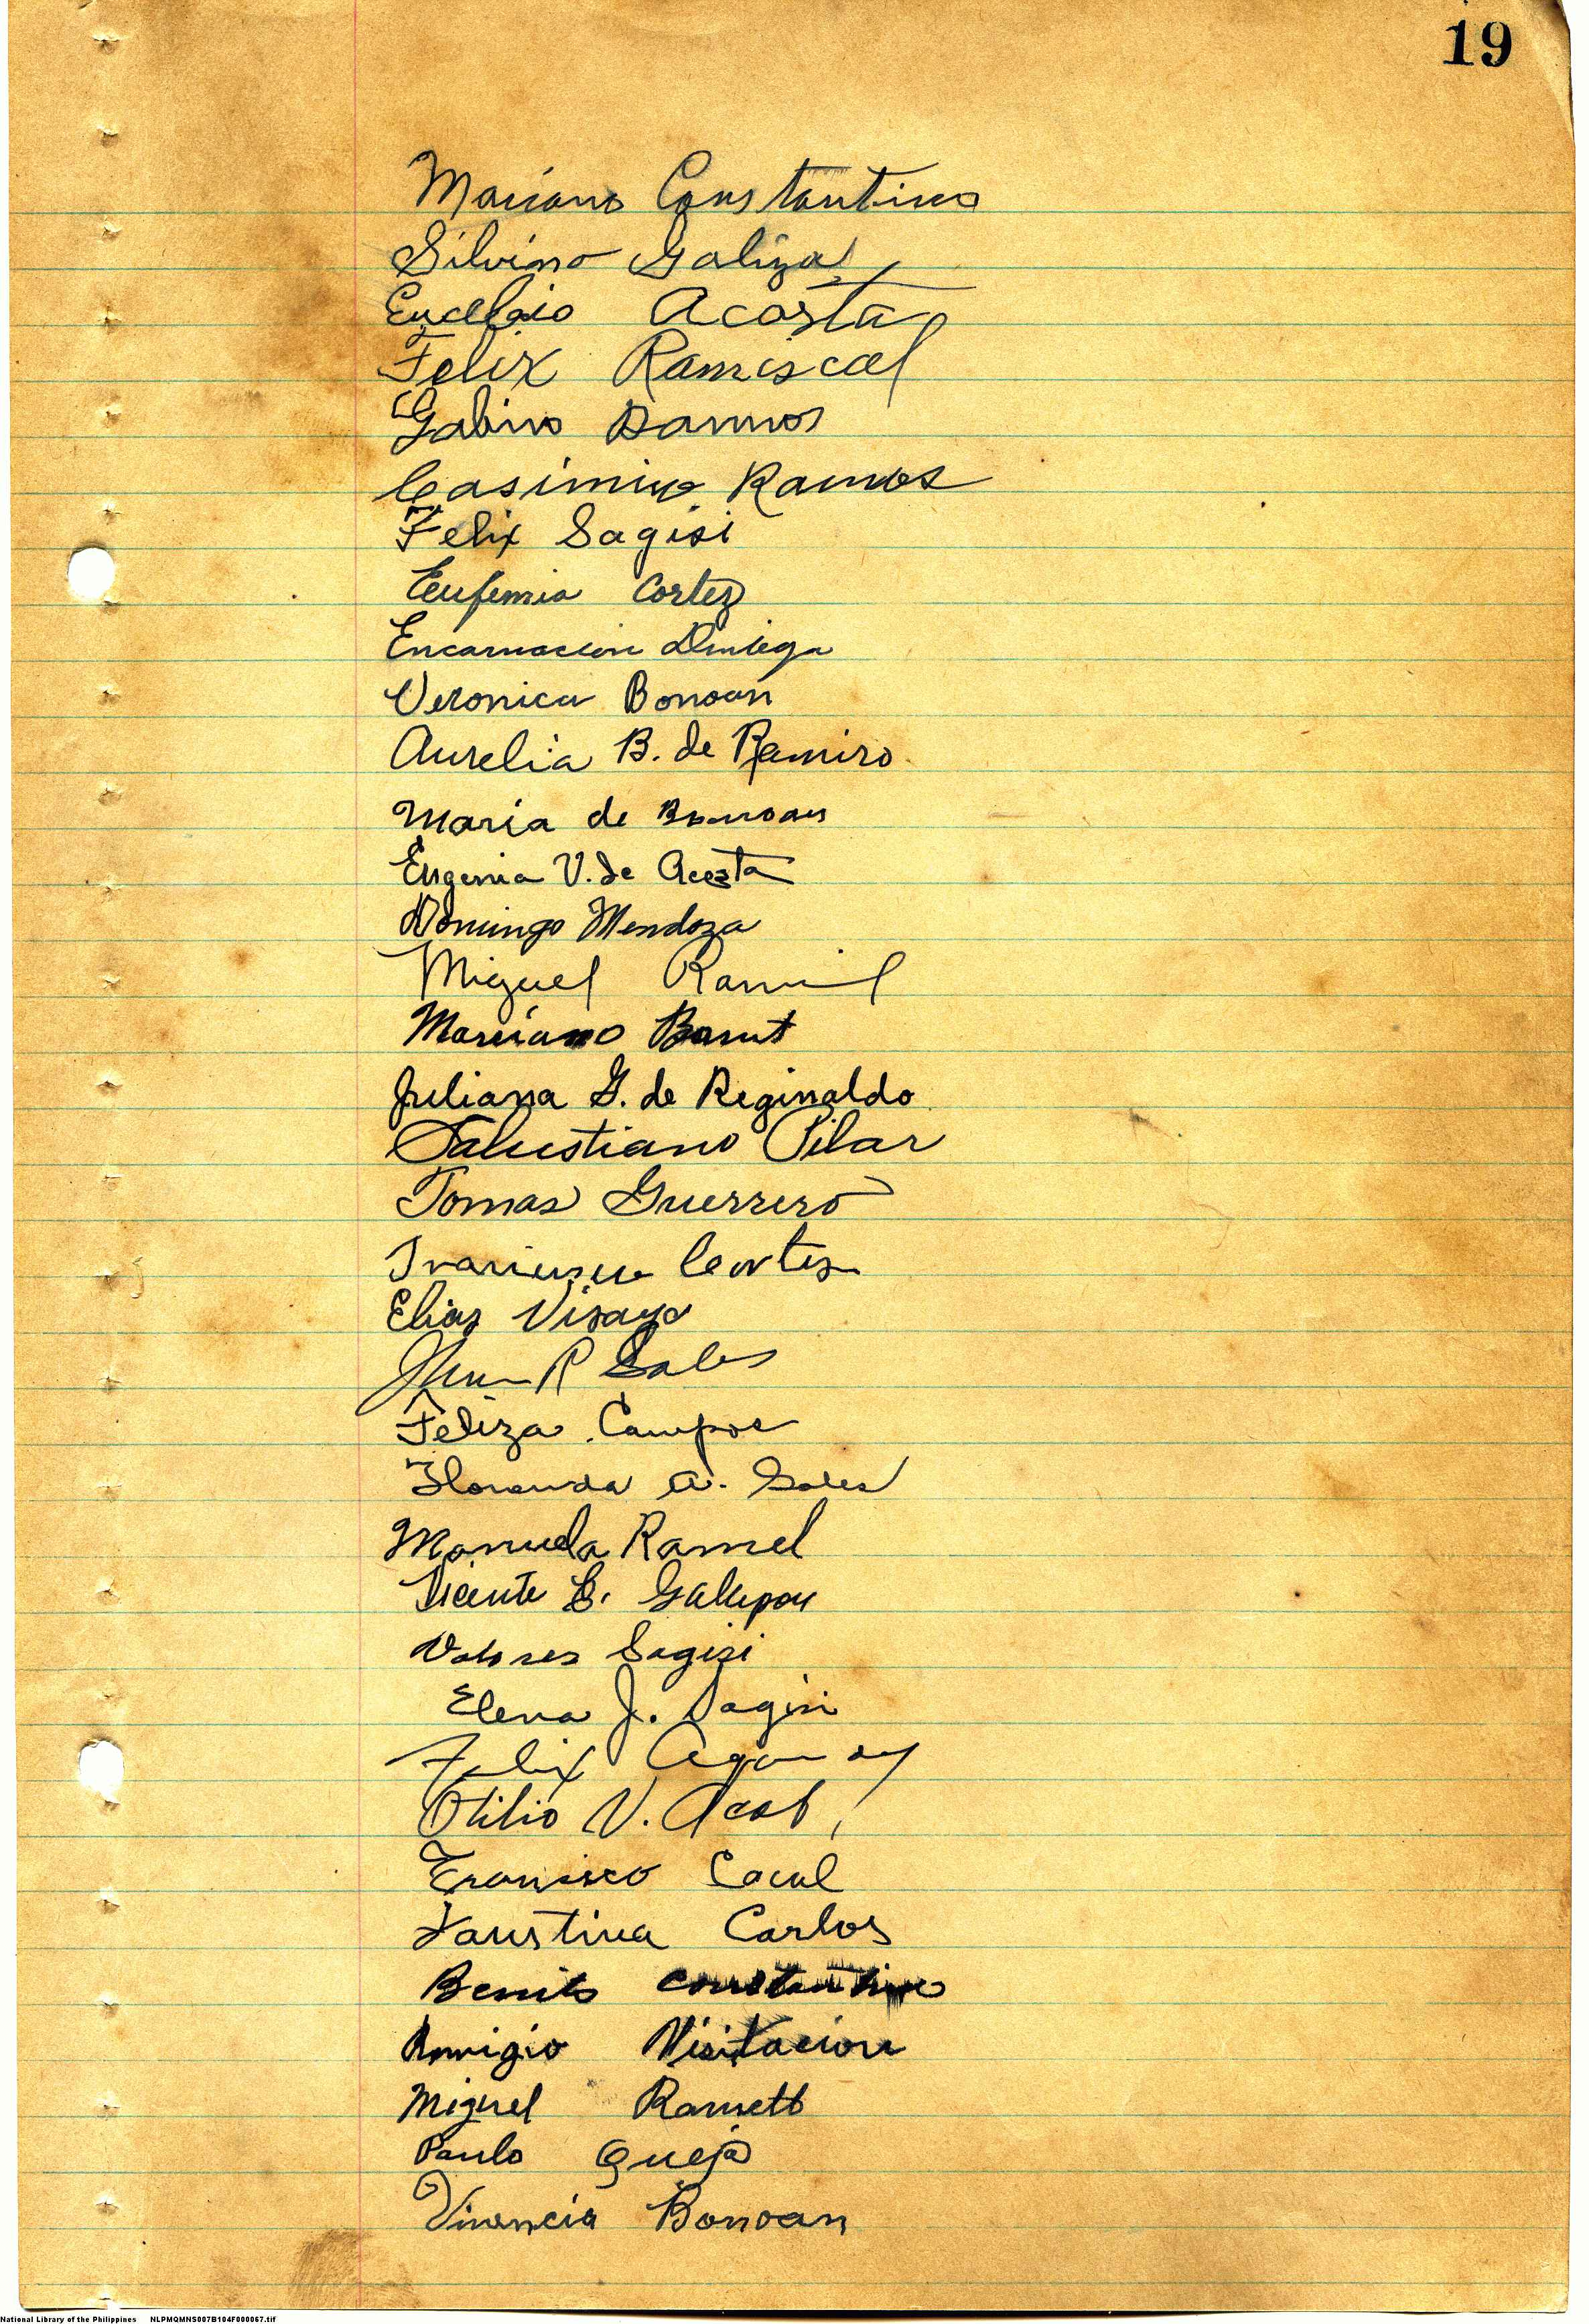 19
Mariano Constantino
Silvino Galiza
Eucebio Acosta
Felix Ramiscal
Gabino Damos
Casimiro Ramos
Felix Sagisi
Eufemia Cortez
Encarnacion
Veronica Bonoan
Aurelia B. de Ramiro
Maria de Bonoan
Eugenia V. de Acosta
Domingo Mendoza
Miguel Ramil
Marciano Barut
Juliana G. de Reginaldo
Salustiano Pilar
Tomas Guerrero
Cortes
Elias Visaya
R Sales
Feliza Campos
A. Sales
Manuela Ramel
Vicente B. Gallepou
Sagisi
Elena J. Sagisi
Felix
Otilio V. Acob
Francisco Cacal
Faustina Carlos
Benito Constantino
Remigio Visitacion
Miguel
Paulo Queja
Vivencia Bonoan
National Library of the Philippines NLPMQMNS007B104F000067.tif